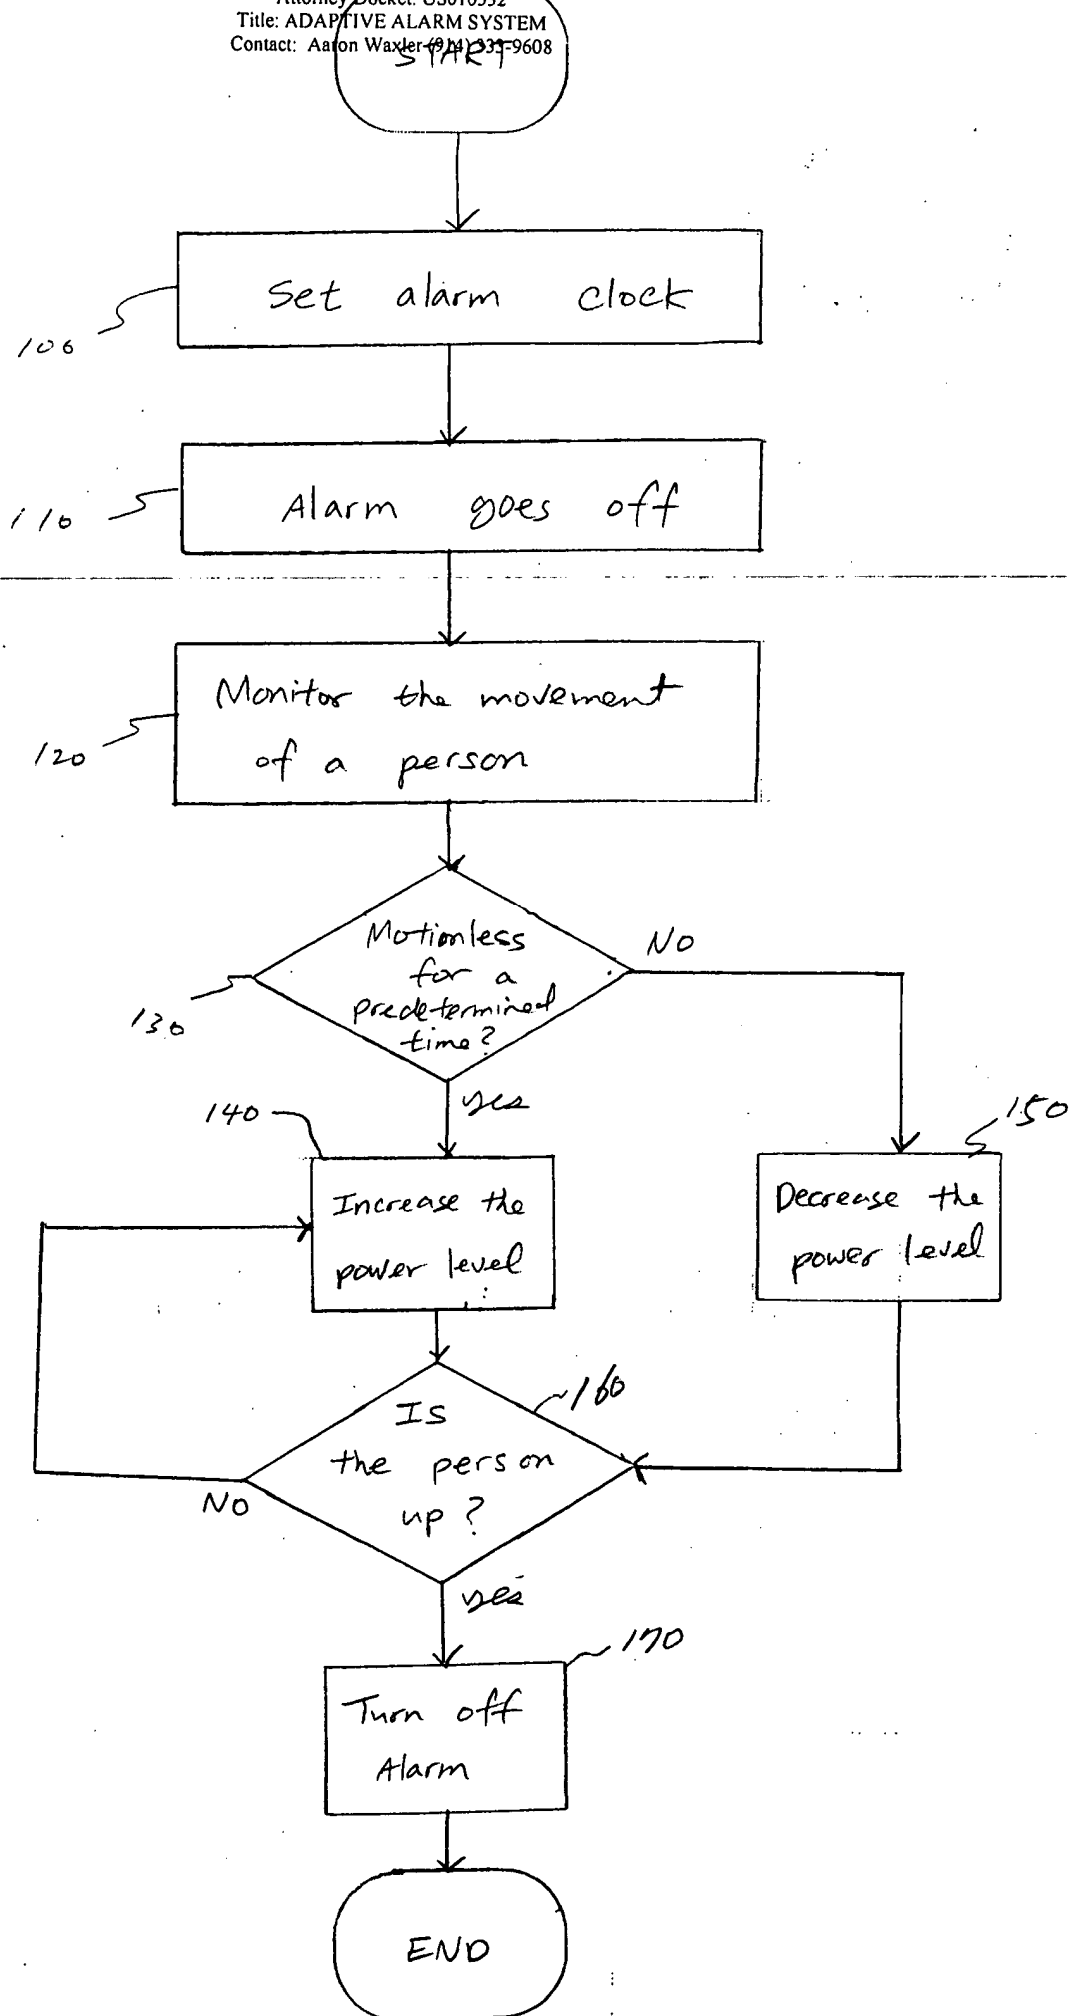 Attorney Docket: US010332
Title: ADAPTIVE ALARM SYSTEM
Contact: Aaron Waxler (914) 333-9608
START
Set alarm clock
100
Alarm goes off
110
Monitor the movement
of a person
120
Motionless
for a
predetermined
time?
NO
130
yes
140
150
Increase the
power level
Decrease the
power level
160
Is
the person
up?
NO
yes
170
Turn off
Alarm
END